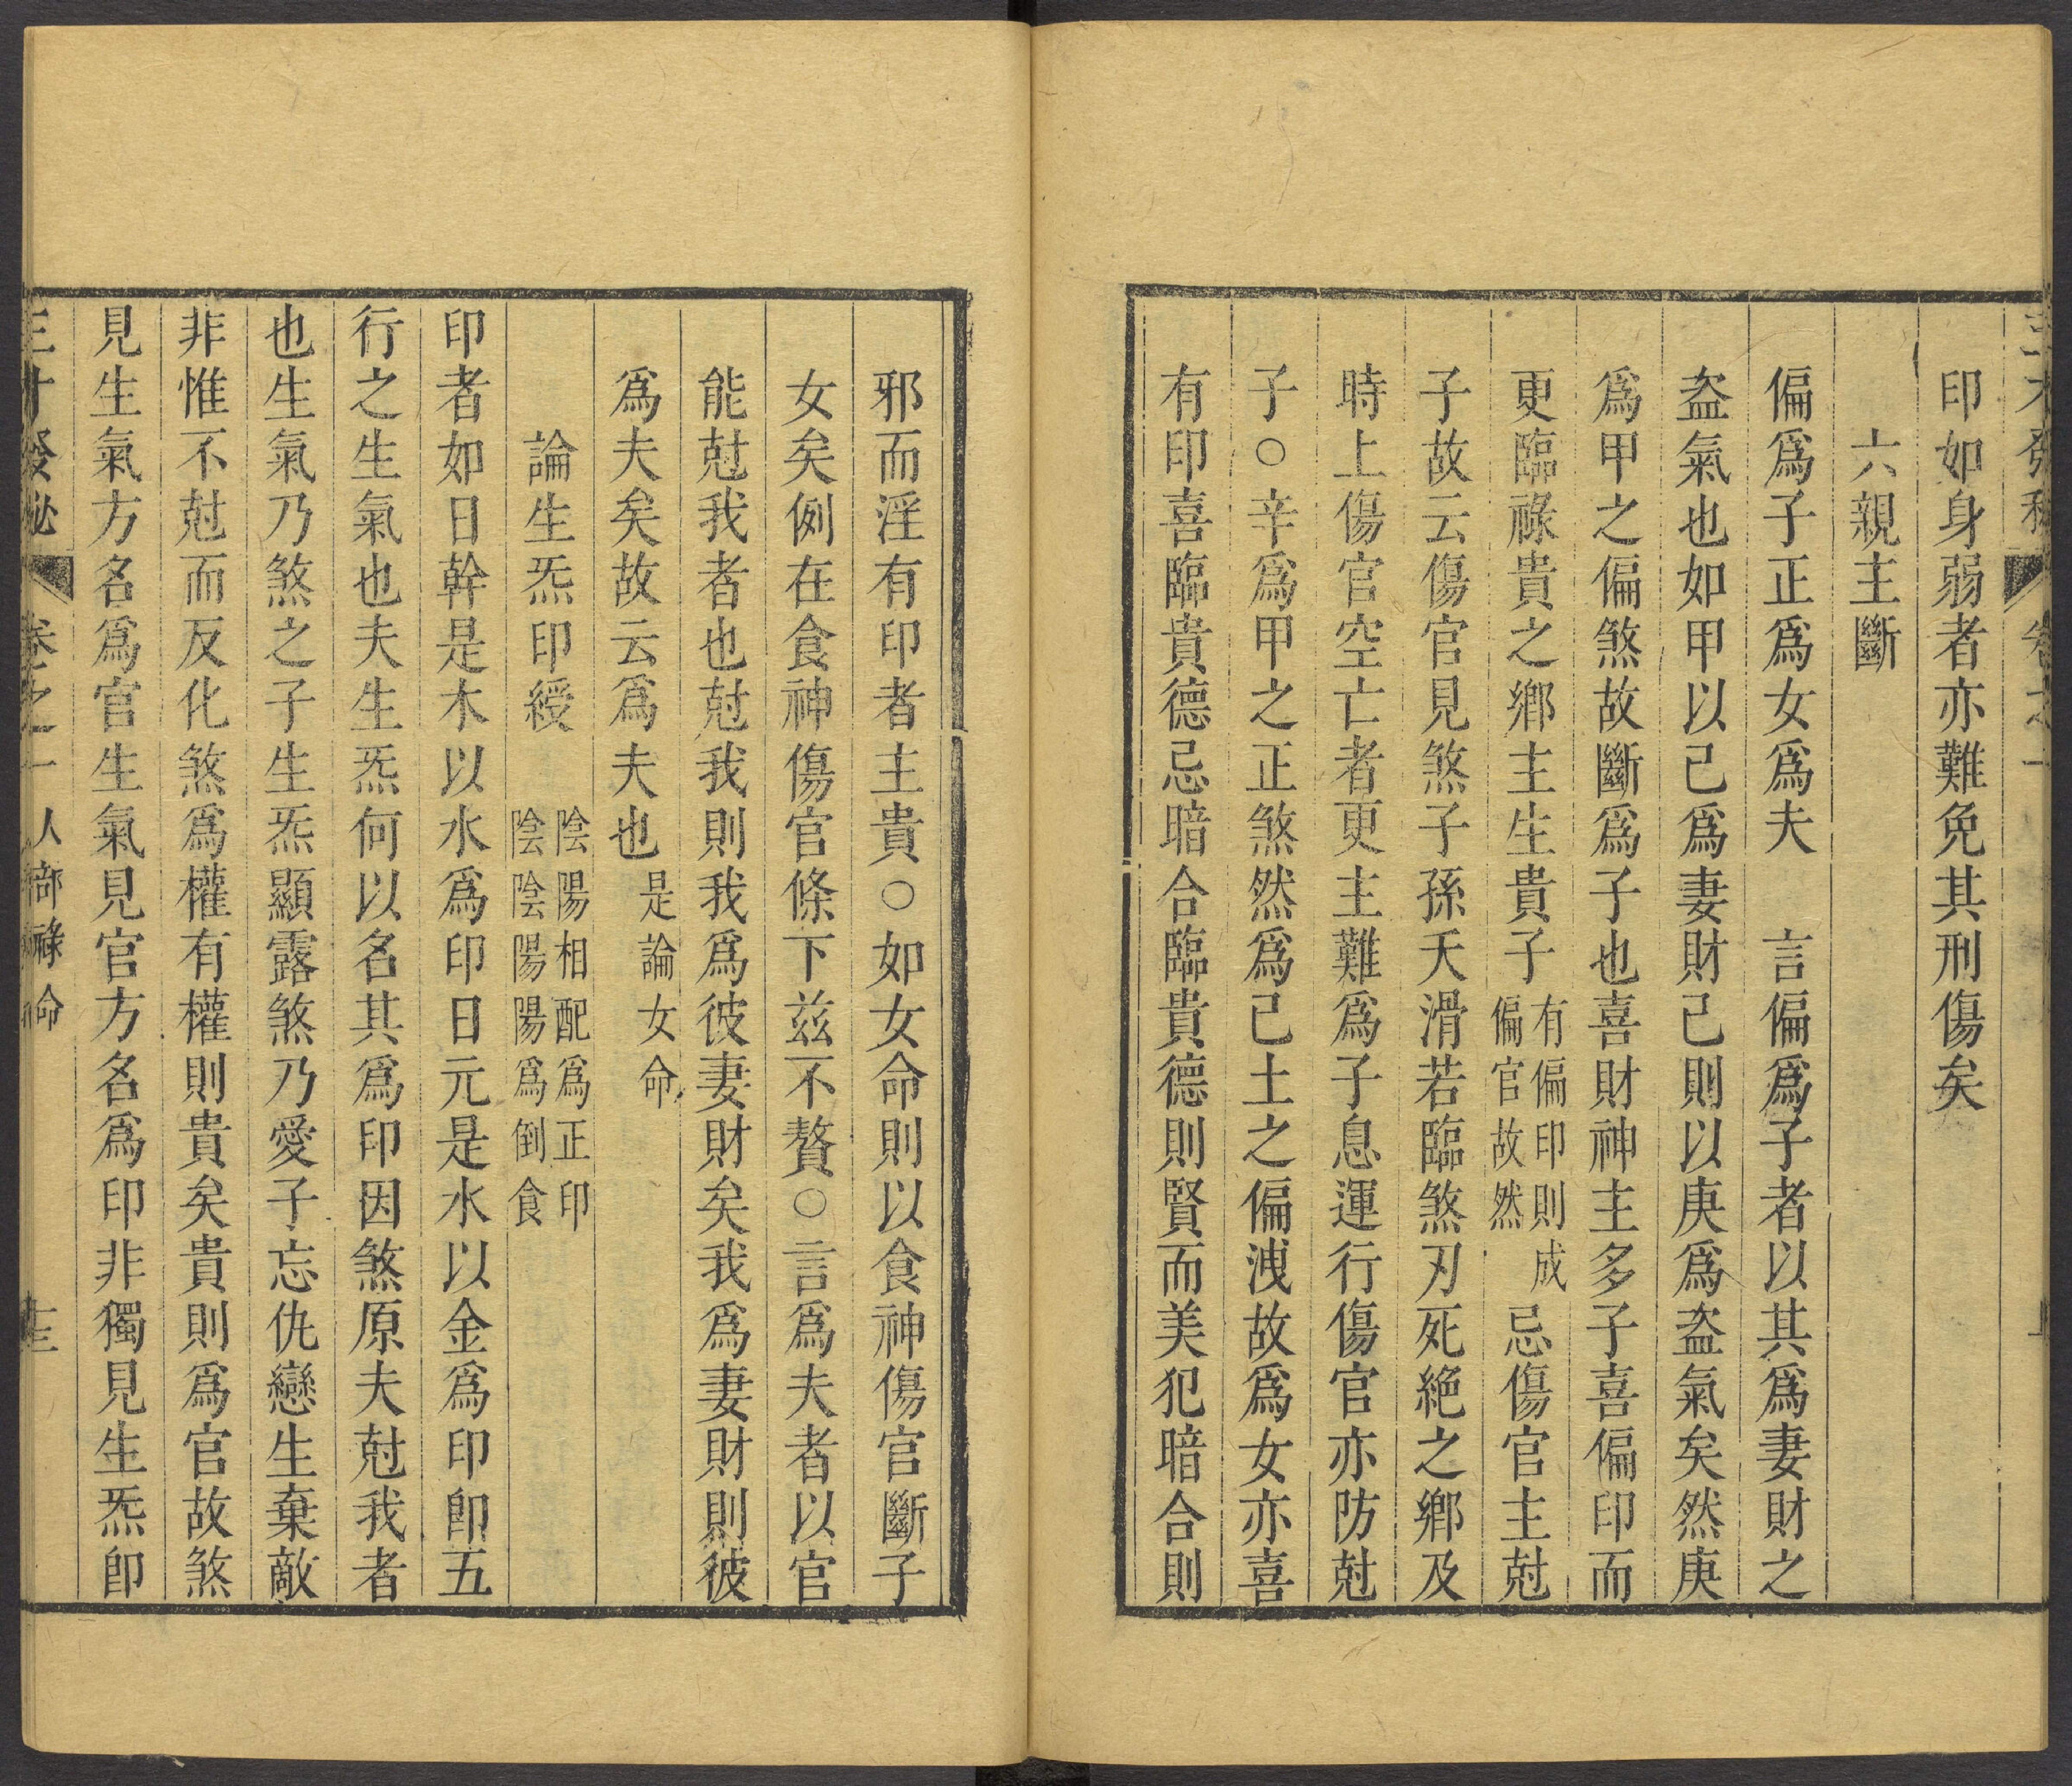 印如身弱者亦難免其刑傷矣
六親主斷
偏爲子正爲女爲夫　言偏爲子者以其爲妻財之
盜氣也如甲以己爲妻財己則以庚爲盜氣矣然庚
爲甲之偏煞故斷爲子也喜財神主多子喜偏印而
更臨祿貴之鄉主生貴子
有偏印則成
偏官故然
忌傷官主尅
子故云傷官見煞子孫夭滑若臨煞刃死絕之鄉及
時上傷官空亡者更主難爲子息運行傷官亦防尅
子○辛爲甲之正煞然爲己土之偏洩故爲女亦喜
有印喜臨貴德忌暗合臨貴德則賢而美犯暗合則
邪而淫有印者主貴○如女命則以食神傷官斷子
女矣例在食神傷官條下茲不贅○言爲夫者以官
能尅我者也尅我則我爲彼妻財矣我爲妻財則彼
爲夫矣故云爲夫也
是論女命
論生炁印綬
陰陽相配爲正印
陰陰陽陽爲倒食
印者如日幹是木以水爲印日元是水以金爲印卽五
行之生氣也夫生炁何以名其爲印因煞原夫尅我者
也生氣乃煞之子生炁顯露煞乃愛子忘仇戀生棄敵
非惟不尅而反化煞爲權有權則貴矣貴則爲官故煞
見生氣方名爲官生氣見官方名爲印非獨見生炁卽
三才發秘　卷之一　人部祿命　十三